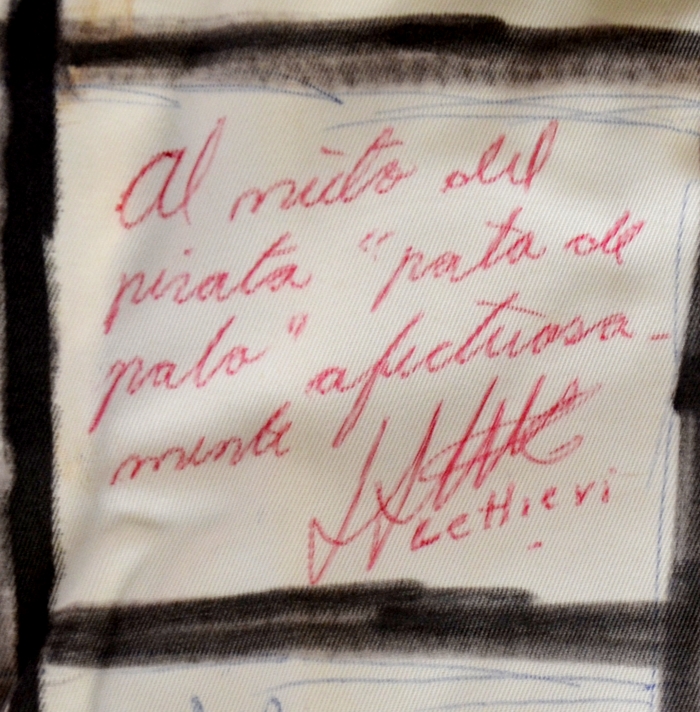 Al nieto del
pirata "pata de
palo" afectuosa-
mente
Lettieri